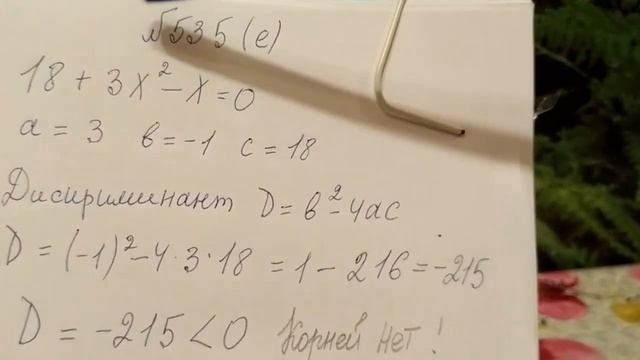 №535 (е)
18 + 3x² - x = 0
a = 3 в = -1 c = 18
Дискриминант D = в² - 4ac
D = (-1)² - 4·3·18 = 1 - 216 = -215
D = -215 < 0 Корней нет!